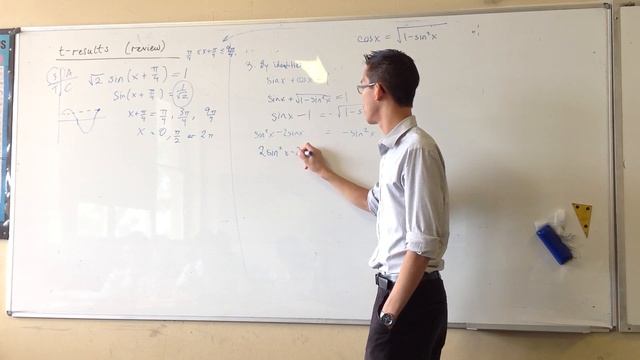 t-results (review)
π/4 ≤ x+π/4 ≤ 9π/4
S | A
T | C
√2 sin(x + π/4) = 1
sin(x + π/4) = 1/√2
x+π/4 = π/4, 3π/4, 9π/4
x = 0, π/2 or 2π
3. By identities
sinx + cosx
sinx + √1-sin²x = 1
sinx - 1 = -√1-s
sin²x - 2sinx = -sin²x
2sin²x -
cosx = √1-sin²x